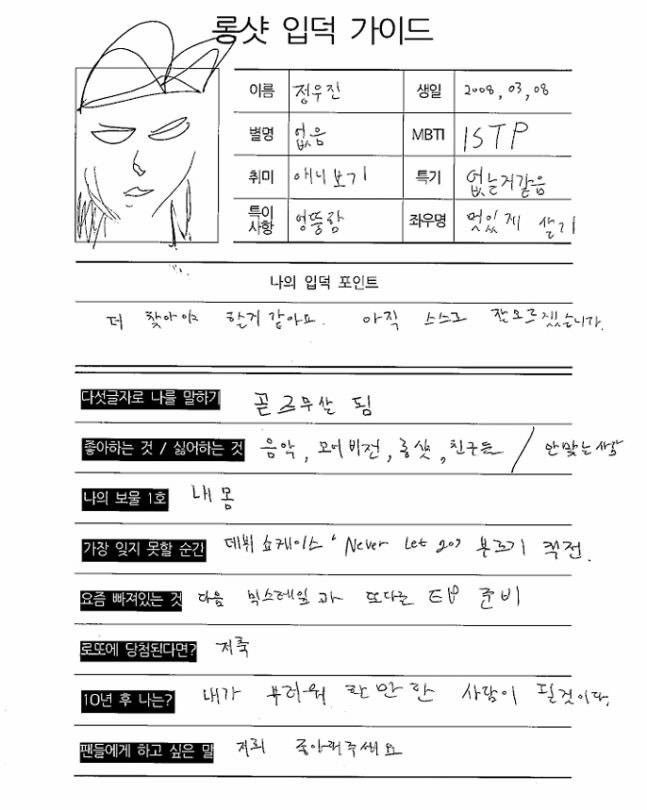 롱샷 입덕 가이드
이름 정우진 생일 2008, 03, 08
별명 없음 MBTI ISTP
취미 애니보기 특기 없는거같음
특이사항 엉뚱함 좌우명 멋있게 살기
나의 입덕 포인트
더 찾아야 할거 같아요. 아직 스스로 잘모르겠습니다.
다섯글자로 나를 말하기 곧 20살 됨
좋아하는 것 / 싫어하는 것 음악, 모어비전, 롱샷, 친구들 / 안맞는사람
나의 보물 1호 내 몸
가장 잊지 못할 순간 데뷔 쇼케이스 'Never Let go' 부르기 직전.
요즘 빠져있는 것 다음 믹스테잎과 또다른 EP 준비
로또에 당첨된다면? 저축
10년 후 나는? 내가 부러워 할만한 사람이 될것이다.
팬들에게 하고 싶은 말 저희 좋아해주세요